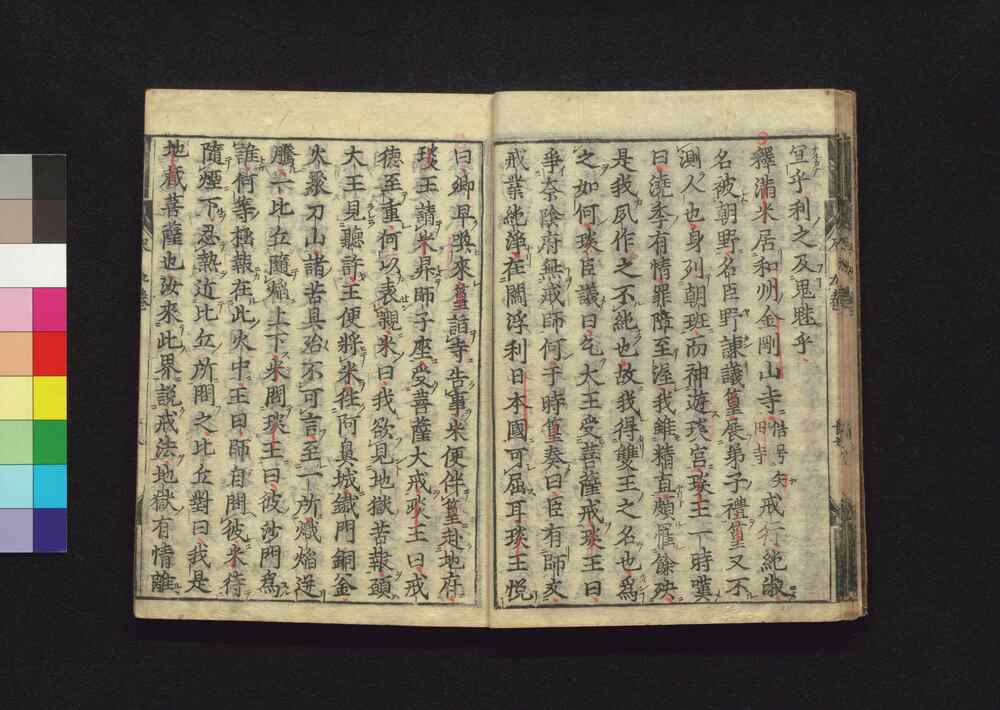 宜乎利之及鬼趣乎
釋滿米居和州金剛山寺俗号矢田寺戒行純淑
名被朝野名臣野諫議篁展弟子禮篁又不
測人也身列朝班而神遊琰宮琰王一時嘆
曰澆季有情罪障至渥我雖精直頗罹餘殃
是我夙作之不純也故我得雙王之名也爲
之如何琰臣議曰乞大王受菩薩戒琰王曰
爭奈陰府無戒師何于時篁奏曰臣有師友
戒業純淨在閻浮利日本國可屈耳琰王悦
曰卿早奬來篁詣寺告事米便伴篁赴地府
琰王請米昇師子座受菩薩大戒琰王曰戒
德至重何以表䞋米曰我欲見地獄苦報願
大王見聽許王便將米往阿鼻城鐵門銅釜
火聚刀山諸苦具殆不可言至一所熾焔迸
騰一比丘隨焔上下米問琰王曰彼沙門爲
誰何等極報在此火中王曰師自問彼米待
隨煙下忍熱近比丘所問之比丘對曰我是
地藏菩薩也汝來此界説戒法地獄有情離